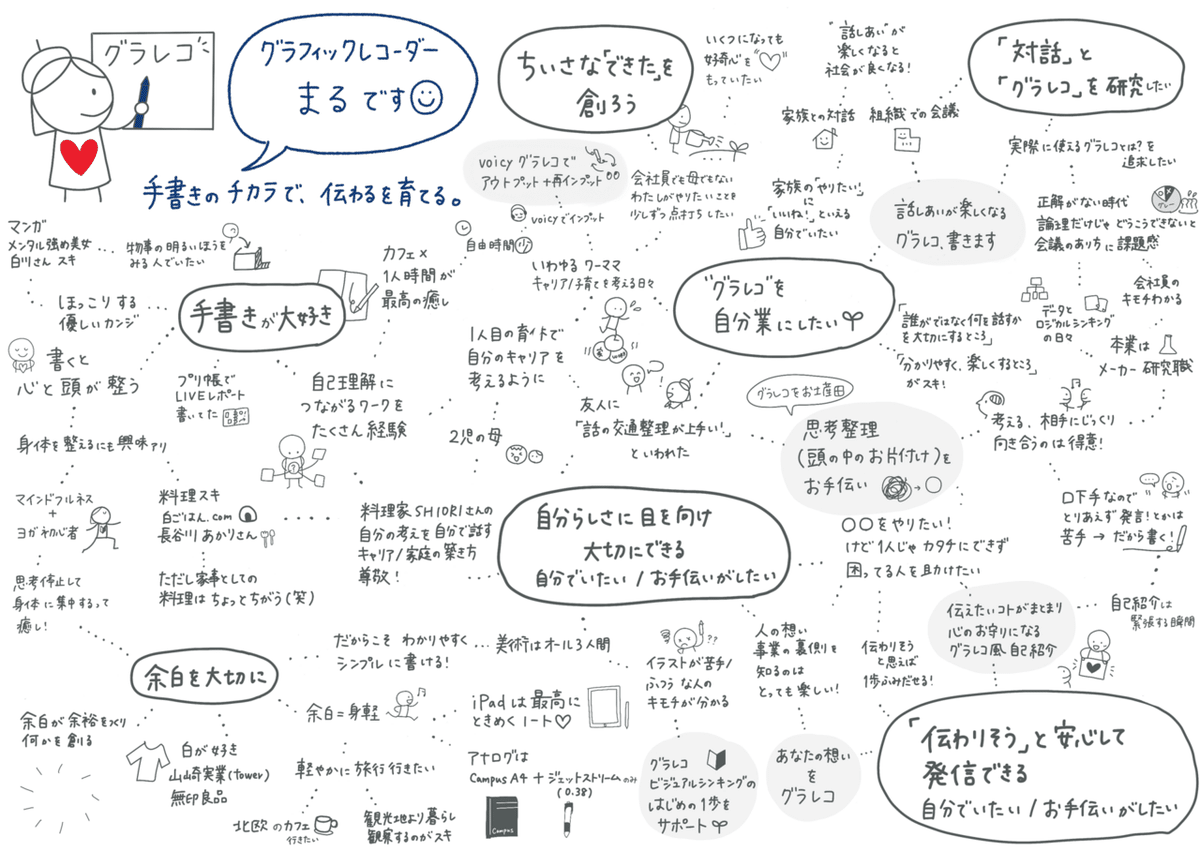 グラレコ
グラフィックレコーダー
まるです
手書きのチカラで、伝わるを育てる。
ちいさな「できた」を
創ろう
いくつになっても
好奇心を
もっていたい
"話しあい"が
楽しくなると
社会が良くなる!
「対話」と
「グラレコ」を研究したい
家族との対話
組織での会議
実際に使えるグラレコとは?を
追求したい
voicyグラレコで
アウトプット+再インプット
voicyでインプット
自由時間少
会社員でも母でもない
わたしがやりたいことを
少しずつ点打ちしたい
家族の「やりたい」
に
「いいね!」といえる
自分でいたい
話しあいが楽しくなる
グラレコ、書きます
正解がない時代
論理だけじゃどうこうできないと
会議のあり方に課題感
マンガ
メンタル強め美女
白川さんスキ
物事の明るいほうを
みる人でいたい
ほっこりする
優しいカンジ
手書きが大好き
カフェ×
1人時間が
最高の癒し
いわゆるワーママ
キャリア/子育てを考える日々
"グラレコ"を
自分業にしたい
「誰がではなく何を話すか
を大切にするところ」
「分かりやすく、楽しくするところ」
がスキ!
データと
ロジカルシンキング
の日々
会社員の
キモチわかる
本業は
メーカー研究職
書くと
心と頭が整う
プリ帳で
LIVEレポート
書いてた
自己理解に
つながるワークを
たくさん経験
1人目の育休で
自分のキャリアを
考えるように
2児の母
友人に
「話の交通整理が上手い!」
といわれた
グラレコをお土産田
思考整理
(頭の中のお片付け)を
お手伝い
考える、相手にじっくり
向き合うのは得意!
身体を整えるにも興味アリ
マインドフルネス
+
ヨガ初心者
料理スキ
白ごはん.com
長谷川あかりさん
料理家SHIORIさんの
自分の考えを自分で話す
キャリア/家庭の築き方
尊敬!
自分らしさに目を向け
大切にできる
自分でいたい/お手伝いがしたい
○○をやりたい!
けど1人じゃカタチにできず
困ってる人を助けたい
口下手なので
とりあえず発言!とかは
苦手→だから書く!
思考停止して
身体に集中するって
癒し!
ただし家事としての
料理はちょっとちがう(笑)
伝えたいコトがまとまり
心のお守りになる
グラレコ風自己紹介
自己紹介は
緊張する瞬間
余白を大切に
だからこそわかりやすく
シンプルに書ける!
美術はオール3人間
??
イラストが苦手/
ふつうな人の
キモチが分かる
人の想い
事業の裏側を
知るのは
とっても楽しい!
伝わりそう
と思えば
1歩ふみだせる!
余白が余裕をつくり
何かを創る
余白=身軽
iPadは最高に
ときめくノート♡
白が好き
山崎実業(tower)
無印良品
軽やかに旅行行きたい
アナログは
Campus A4+ジェットストリームのみ
(0.38)
Campus
北欧のカフェ
行きたい
観光地より暮らし
観察するのがスキ
グラレコ
ビジュアルシンキングの
はじめの1歩を
サポート
あなたの想い
を
グラレコ
「伝わりそう」と安心して
発信できる
自分でいたい/お手伝いがしたい